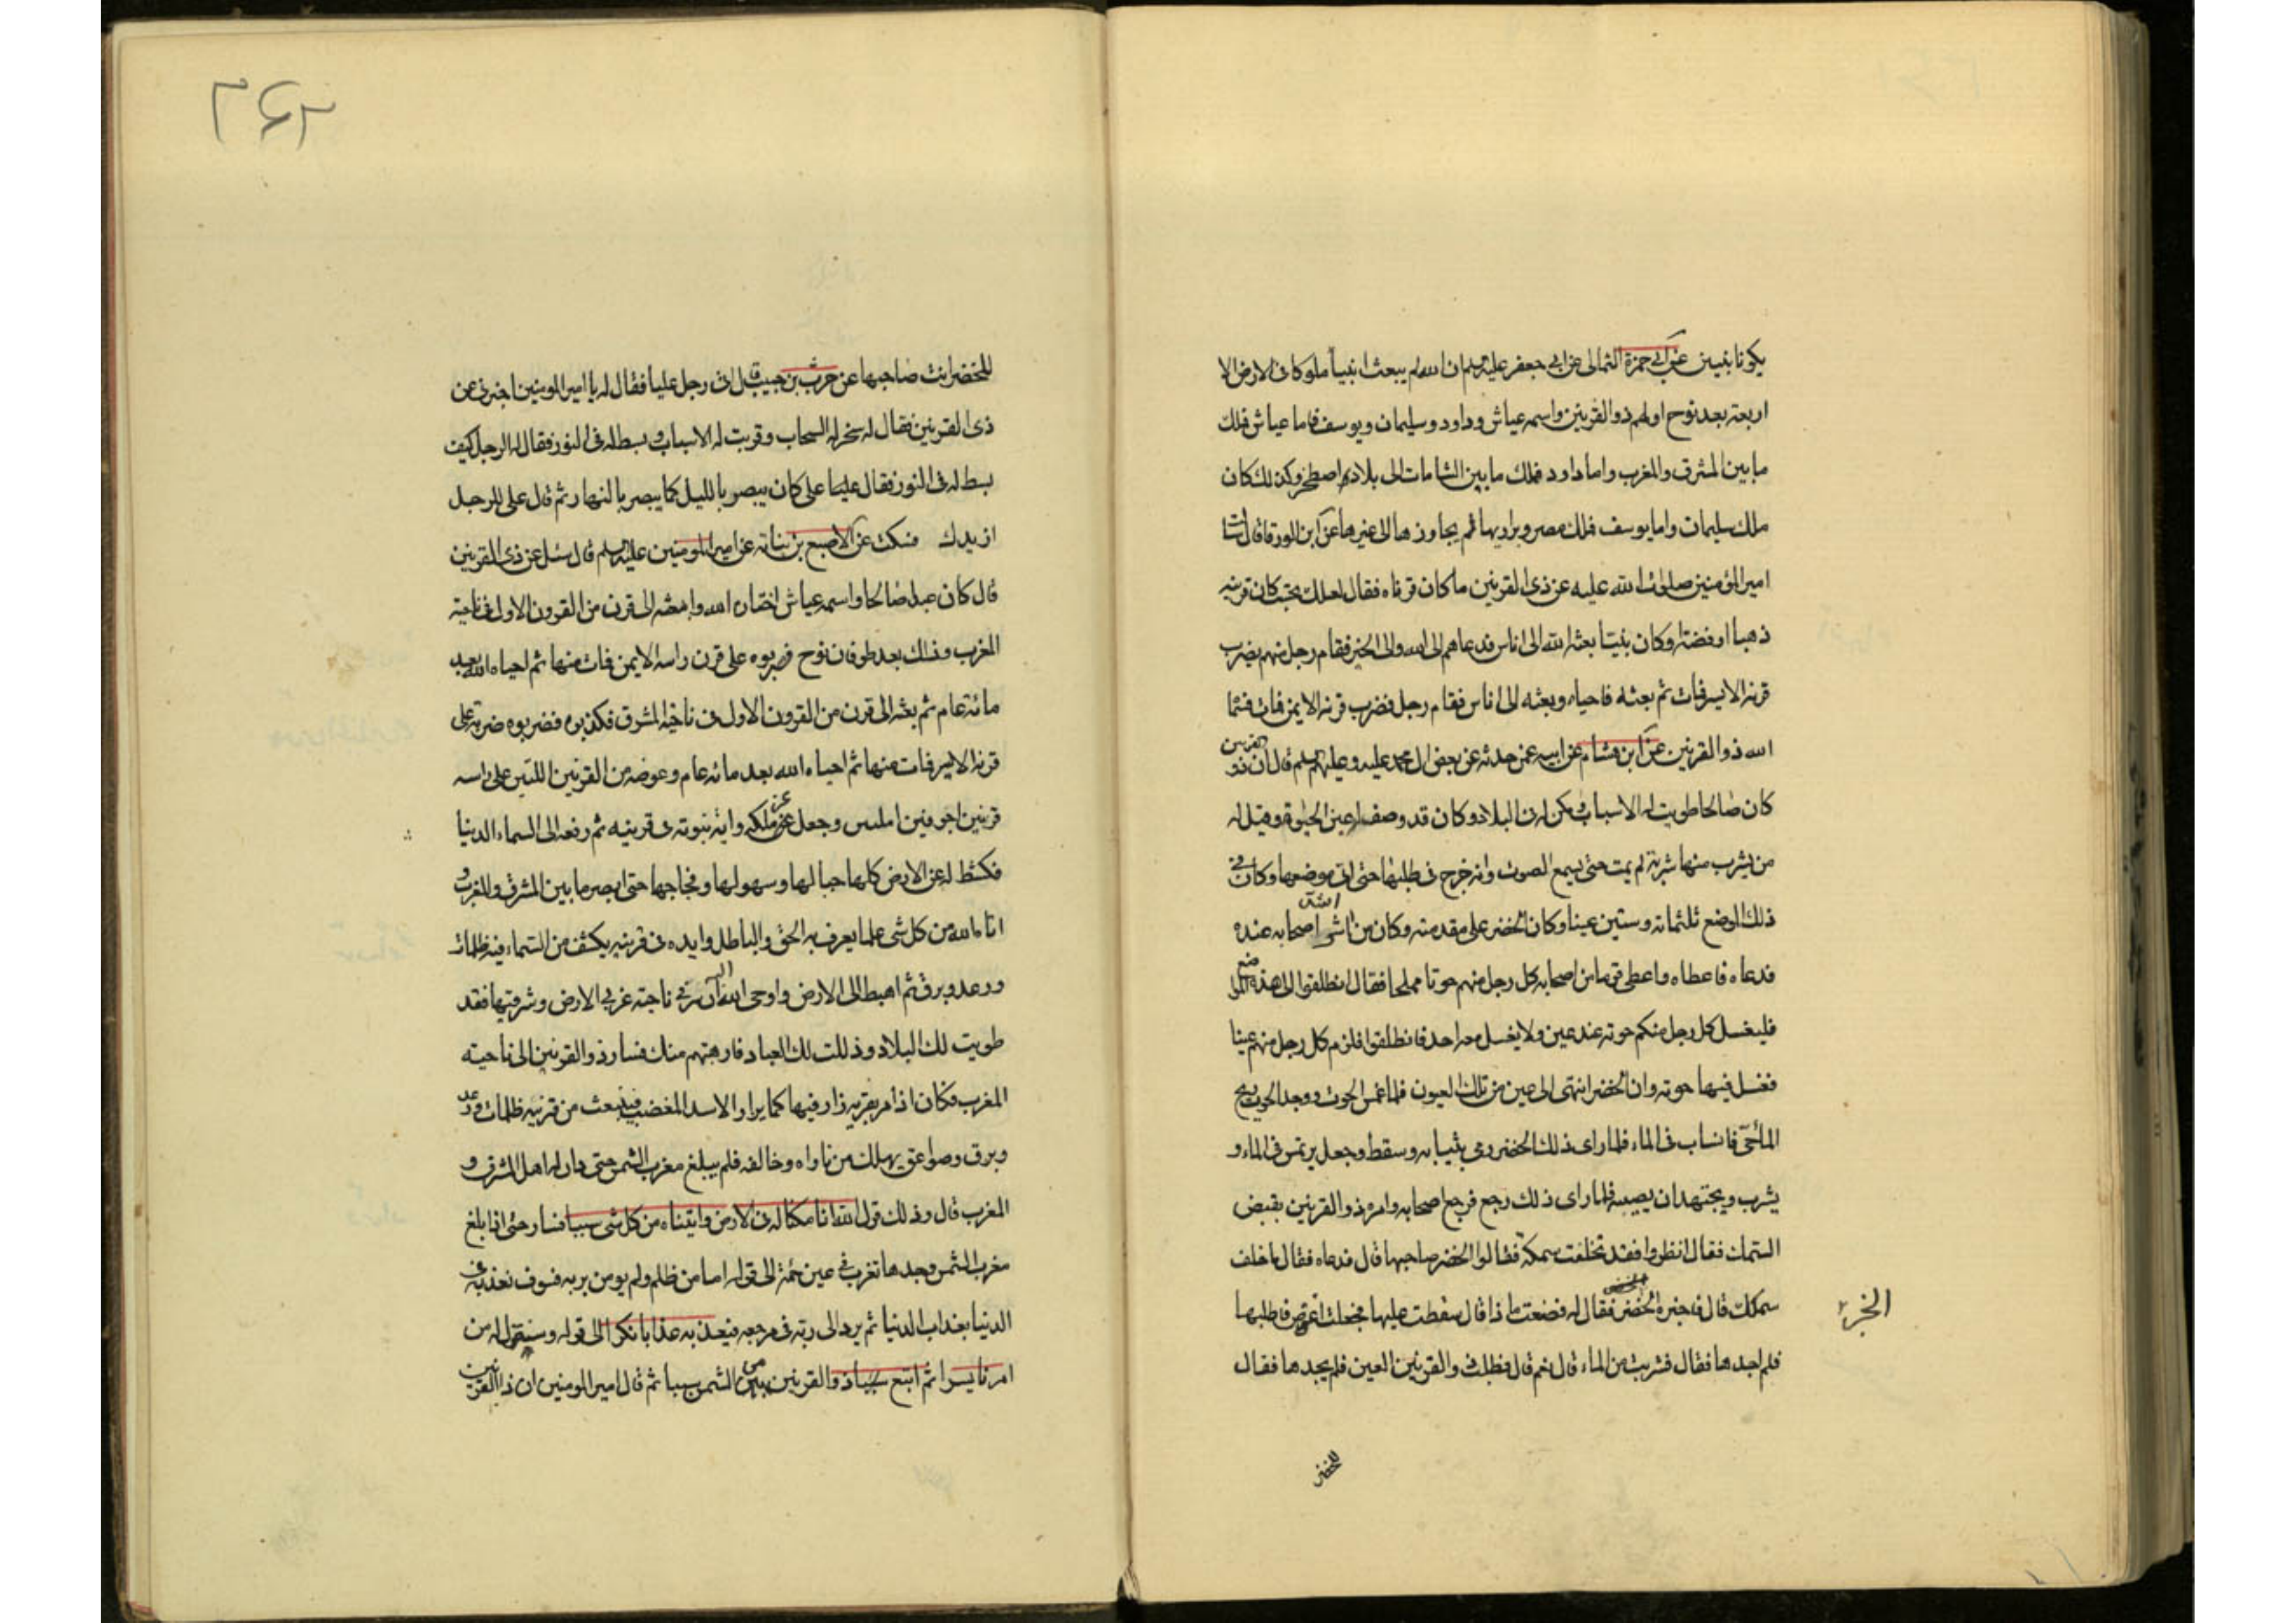 يكونا نبيين عن ابي حمزة الثمالى عن ابي جعفر عليه السلم ان الله لم يبعث انبياء ملوكا فى الارض الا
اربعة بعد نوح اولهم ذو القرنين واسمه عياش وداود وسليمان ويوسف فاما عياش فملك
ما بين المشرق والمغرب واما داود فملك ما بين الشامات الى بلاد اصطخر وكذلك كان
ملك سليمان واما يوسف فملك مصر وبراريها لم يجاوزها الى غيرها عن ابن الورقا قال سالت
امير المؤمنين صلوات الله عليه عن ذى القرنين ما كان قرناه فقال لعلك تحسب كان قرنيه
ذهبا او فضة وكان نبيا بعثه الله الى اناس فدعاهم الى الله والى الخير فقام رجل منهم يضرب
قرنه الايسر فمات ثم بعثه فاحياه وبعثه الى اناس فقام رجل فضرب قرنه الايمن فمات فسما
الله ذو القرنين عن ابن هشام عن ابيه عمن حدثه عن بعض ال محمد عليه وعليهم السلم قال ان ذو القرنين
كان صالحا طويت له الاسباب ومكن له فى البلاد وكان قد وصف له عين الحيوة وقيل له
من يشرب منها شربة لم يمت حتى يسمع الصوت وانه خرج فى طلبها حتى اتى موضعها وكان في
ذلك الموضع ثلثمائة وستين عينا وكان الخضر على مقدمته وكان من اشد اصحابه عنده
فدعاه فاعطاه واعطى قوما من اصحابه كل رجل منهم حوتا مملحا فقال انطلقوا الى هذه المواضع
فليغسل كل رجل منكم حوته عند عين ولا يغسل معه احد فانطلقوا فلزم كل رجل منهم عينا
فغسل فيها حوته وان الخضر انتهى الى عين من تلك العيون فلما غمس الحوت ووجد الحوت ريح
الماء حى فانساب فى الماء فلما راى ذلك الخضر رمى بثيابه وسقط وجعل يرتمس فى الماء و
يشرب ويجتهد ان يصيبه فلما راى ذلك رجع فرجع اصحابه وامر ذو القرنين بقبض
السمك فقال انظروا فقد تخلفت سمكة فقالوا الخضر صاحبها قال فدعاه فقال ما خلف
سمكتك قال فاخبره الخضر فقال له فصنعت ما ذا قال سقطت عليها فجعلت اغوص فاطلبها
الخبر
فلم اجدها فقال فشربت من الماء قال نعم قال فطلب ذو القرنين العين فلم يجدها فقال
للخضر
للخضر انت صاحبها عن حرث بن حبيب قال اتى رجل عليا فقال له يا امير المومنين اخبرنى عن
ذى القرنين فقال له سخر له السحاب وقربت له الاسباب وبسط له فى النور فقال له الرجل كيف
بسط له فى النور فقال على كان يبصر بالليل كما يبصر بالنهار ثم قال على للرجل
ازيدك فسكت عن الاصبغ بن نباتة عن امير المومنين عليه السلم قال سئل عن ذى القرنين
قال كان عبدا صالحا واسمه عياش اختاره الله وابتعثه الى قرن من القرون الاول فى ناحية
المغرب وذلك بعد طوفان نوح فضربوه على قرن راسه الايمن فمات منها ثم احياه الله بعد
مائة عام ثم بعثه الى قرن من القرون الاول فى ناحية المشرق فكذبوه فضربوه ضربة على
قرنه الايسر فمات منها ثم احياه الله بعد مائة عام وعوضه من القرنين اللتين على راسه
قرنين اجوفين املس وجعل عز ملكه واية نبوته فى قرنيه ثم رفعه الى السماء الدنيا
فكشط له عن الارض كلها جبالها وسهولها وفجاجها حتى ابصر ما بين المشرق والمغرب و
اتاه الله من كل شى علما يعرف به الحق والباطل وايده فى قرنيه بكسف من السماء فيه ظلمات
ورعد وبرق ثم اهبط الى الارض واوحى الله اليه ان سر في ناحية غربي الارض وشرقيها فقد
طويت لك البلاد وذللت لك العباد فارهبتهم منك فسار ذو القرنين الى ناحية
المغرب فكان اذا مر بقرية زار فيها كما يزار الاسد المغضب فينبعث من قرنيه ظلمات ورعد
وبرق وصواعق يهلك من ناواه وخالفه فلم يبلغ مغرب الشمس حتى دان له اهل المشرق و
المغرب قال وذلك قول الله انا مكنا له فى الارض واتيناه من كل شى سببا فسار حتى اذا بلغ
مغرب الشمس وجدها تغرب في عين حمئة الى قوله اما من ظلم ولم يومن بربه فسوف نعذبه فى
الدنيا بعذاب الدنيا ثم يرد الى ربه فى مرجعه فيعذبه عذابا نكرا الى قوله وسنقول له من
امرنا يسرا ثم اتبع سببا ذو القرنين من الشمس سببا ثم قال امير المومنين ان ذا القرنين